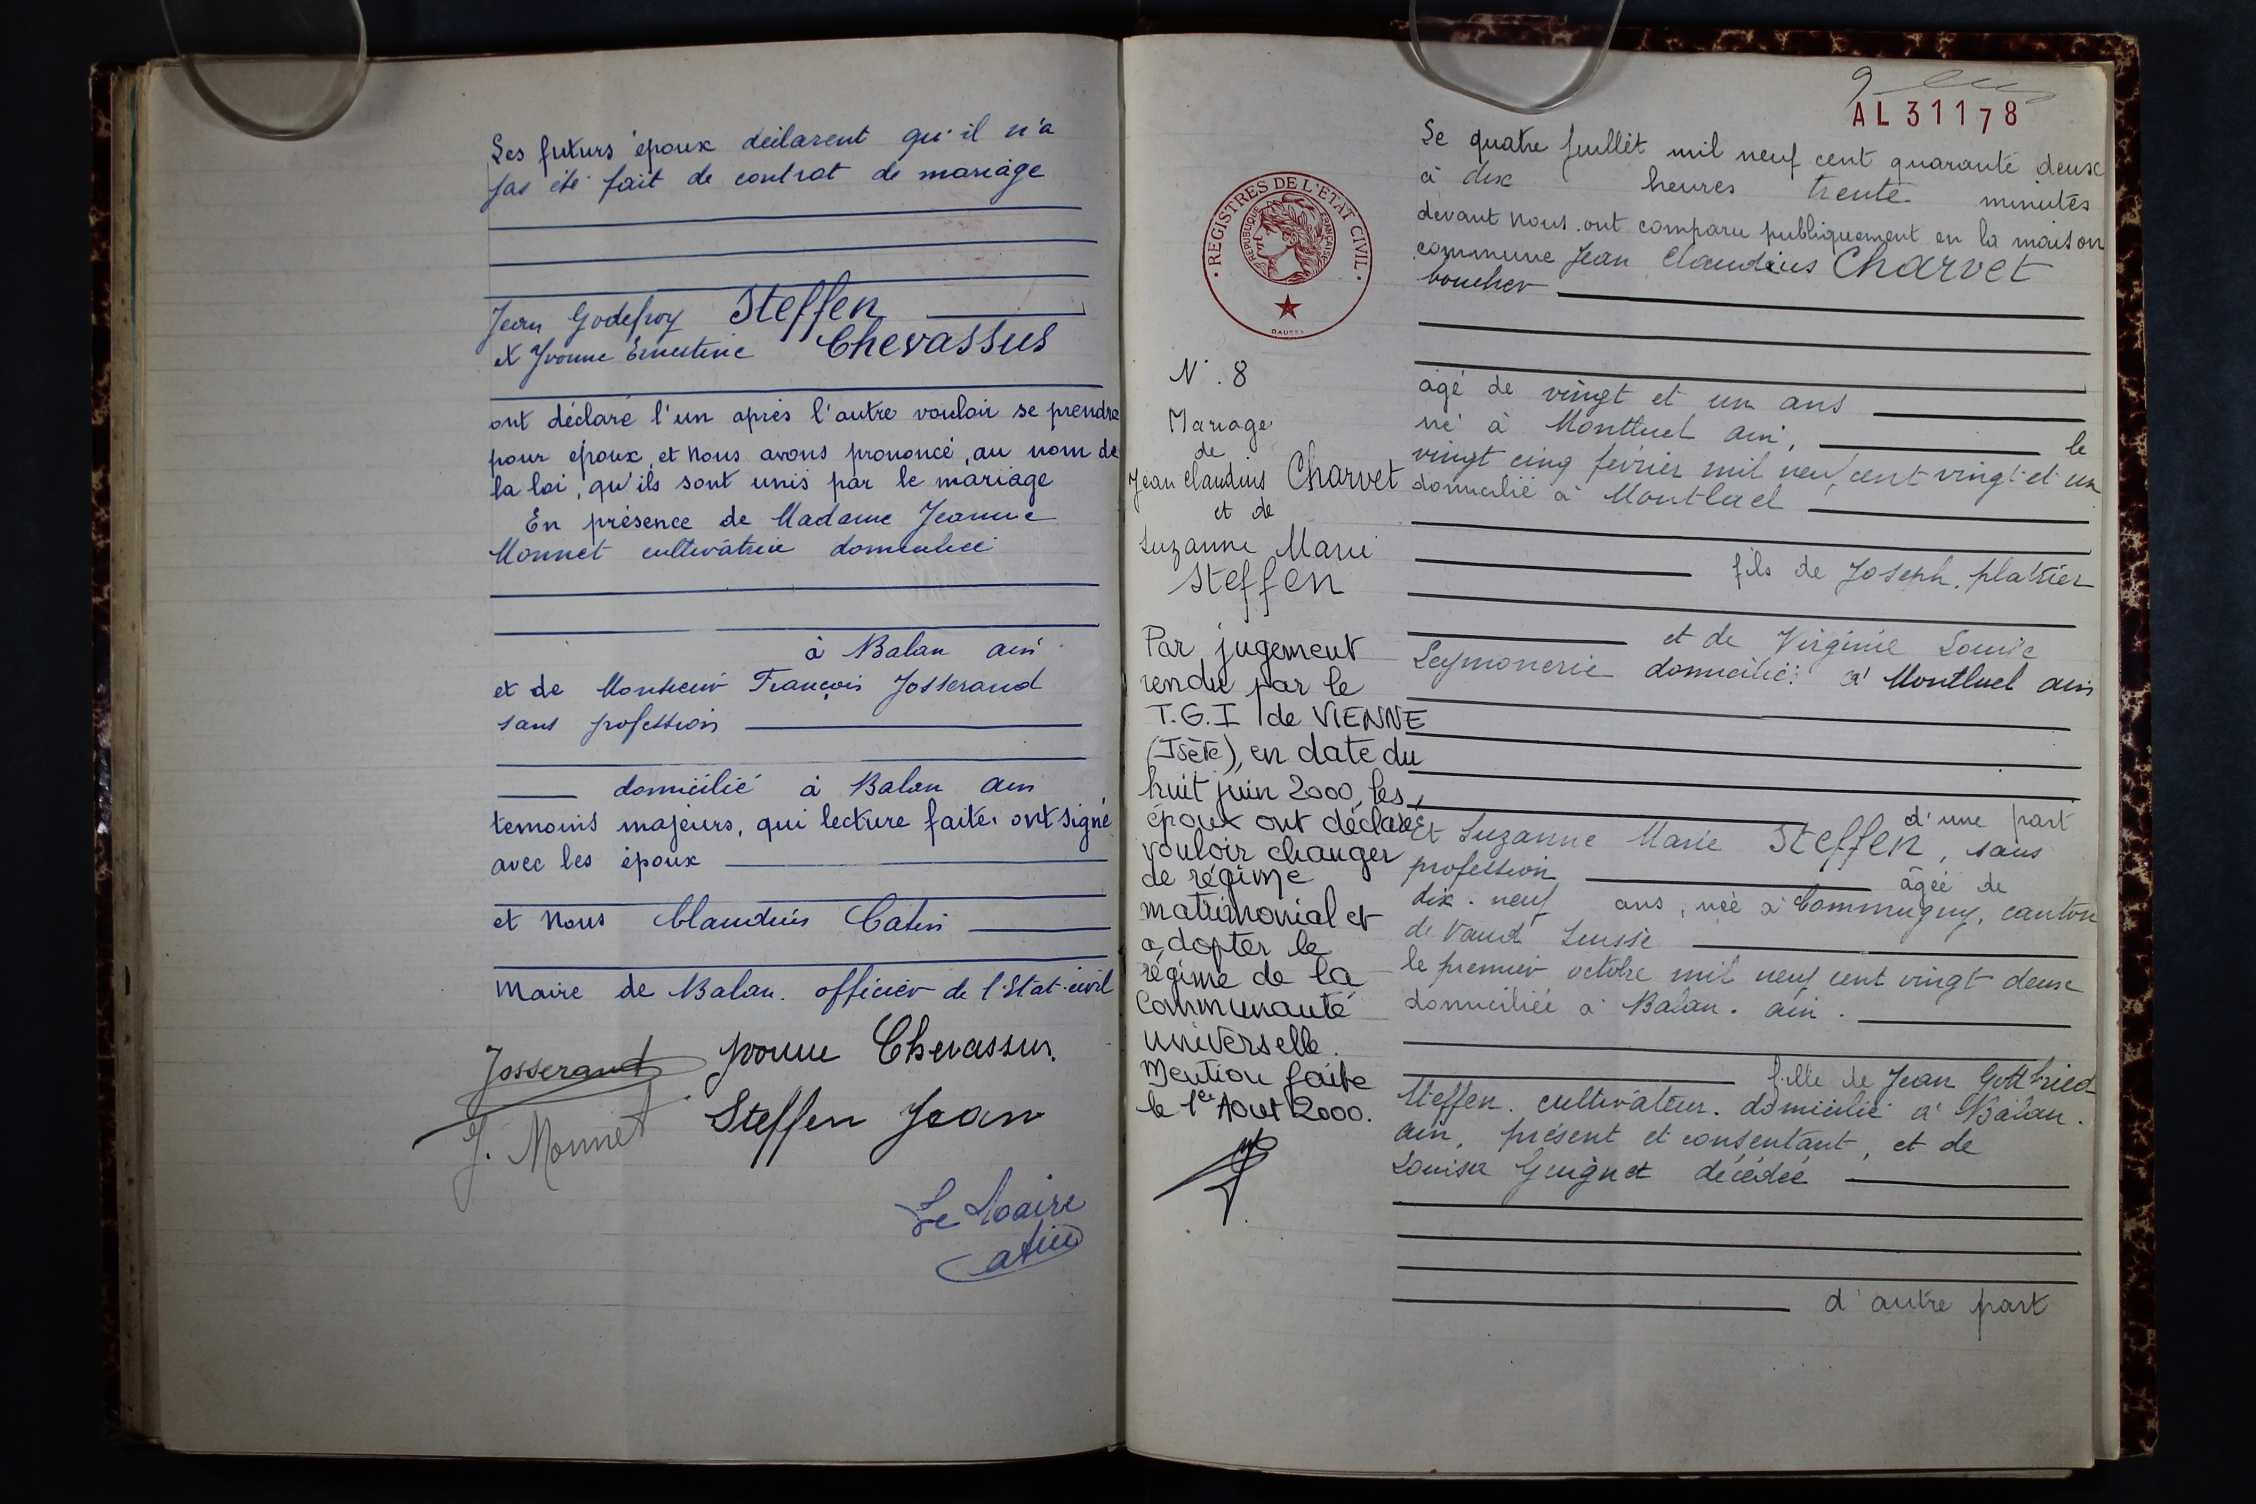 Les futurs époux déclarent qu'il n'a
pas été fait de contrat de mariage
Jean Godefroy Steffen
et Yvonne Ernestine Chevassus
ont déclaré l'un après l'autre vouloir se prendre
pour époux, et Nous avons prononcé, au nom de
la loi, qu'ils sont unis par le mariage
En présence de Madame Jeanne
Monnet cultivatrice domiciliée
à Balan ain
et de Monsieur François Josserand
sans profession
domicilié à Balan ain
temoins majeurs, qui lecture faite, ont signé
avec les époux
et Nous Claudius Catin
Maire de Balan. officier de l'Etat-civil
Josserand Yvonne Chevassus
J. Monnet Steffen Jean
Le Maire
Catin
9
AL 31178
REGISTRES DE L'ETAT CIVIL
REPUBLIQUE FRANCAISE
N°. 8
Mariage
de
Jean Claudius Charvet
et de
Suzanne Marie
Steffen
Par jugement
rendu par le
T.G.I de VIENNE
(Isère), en date du
huit juin 2000, les
époux ont déclaré
vouloir changer
de régime
matrimonial et
adopter le
régime de la
communauté
universelle.
Mention faite
le 1er Aout 2000.
Le quatre Juillet mil neuf cent quarante deux
à dix heures trente minutes
devant Nous ont comparu publiquement en la maison
commune Jean Claudius Charvet
boucher
agé de vingt et un ans
né à Montluel ain, le
vingt cinq février mil neuf cent vingt et un
domicilié à Montluel
fils de Joseph, platrier
et de Virginie Louise
Leymonerie domiciliés à Montluel ain
d'une part
Et Suzanne Marie Steffen, sans
profession âgée de
dix-neuf ans, née à Commugny, canton
de Vaud Suisse
le premier octobre mil neuf cent vingt deux
domiciliée à Balan. ain.
fille de Jean Gottfried
Steffen. cultivateur. domicilié à Balan.
ain, présent et consentant, et de
Louisa Guignet décédée
d'autre part